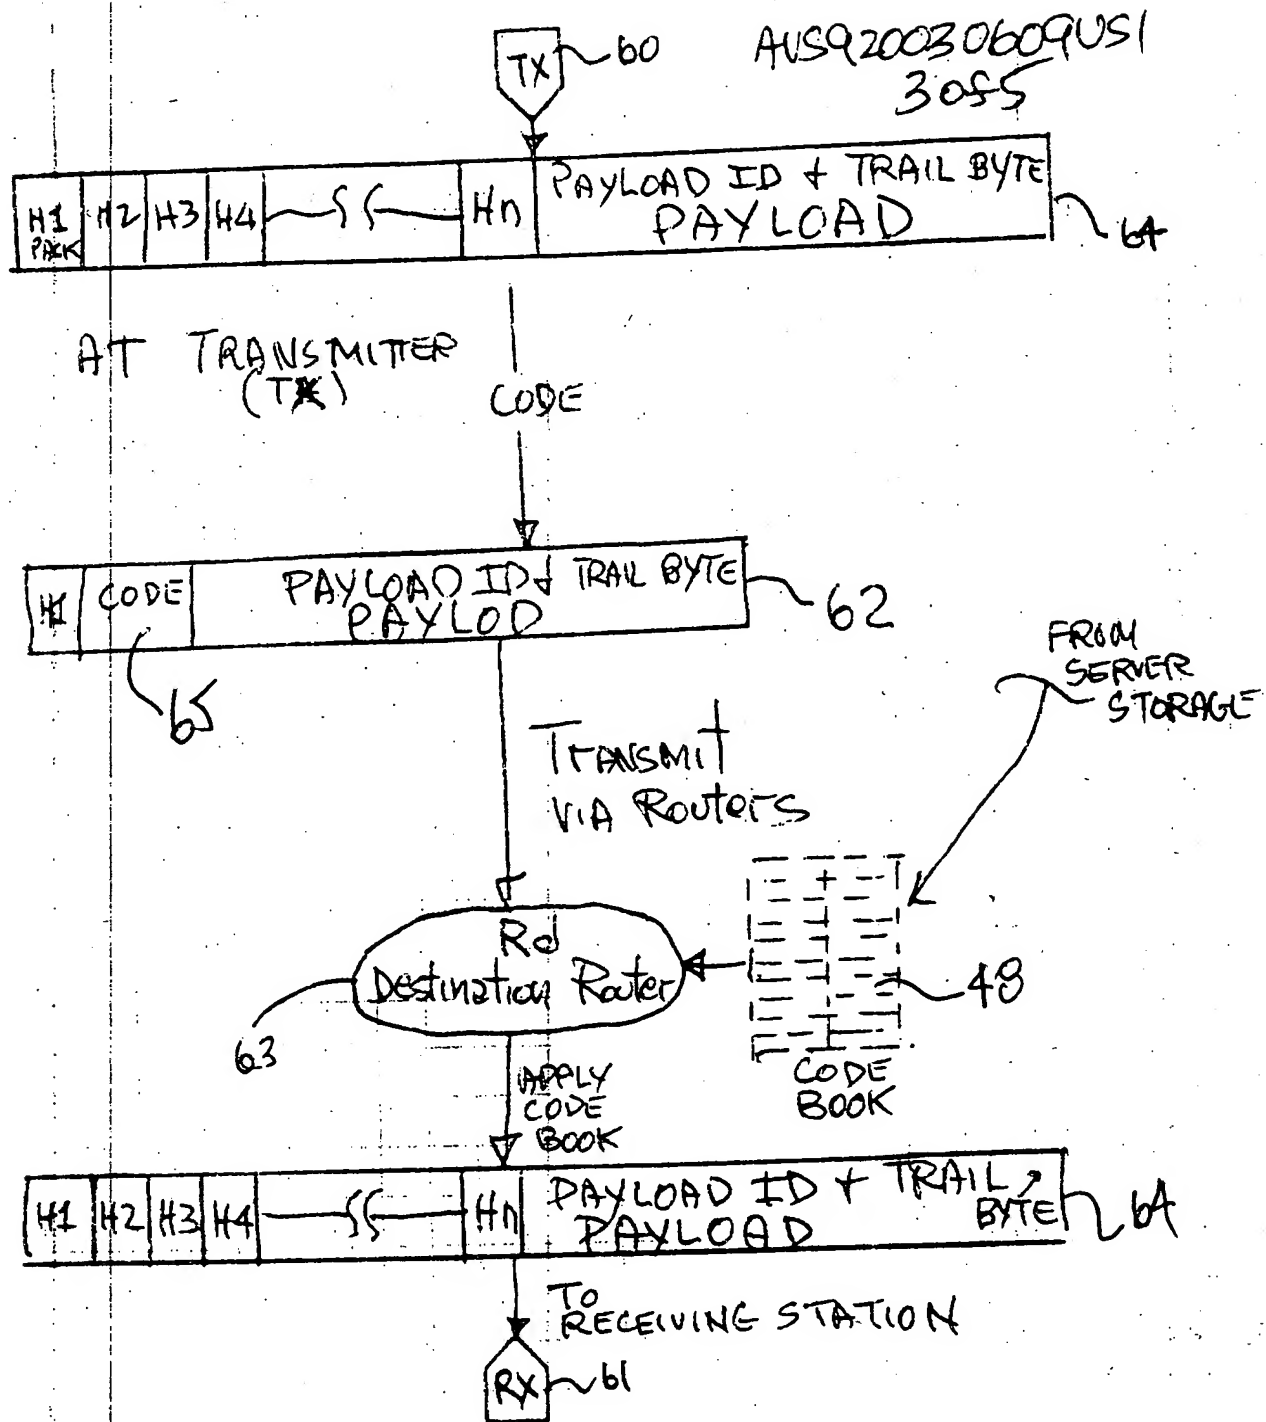 TX
60
AUS920030609US1
3 of 5
H1 PACK H2 H3 H4 Hn PAYLOAD ID & TRAIL BYTE
PAYLOAD
64
AT TRANSMITTER
(TX)
CODE
H1 CODE PAYLOAD ID & TRAIL BYTE
PAYLOD
62
65
FROM
SERVER
STORAGE
TRANSMIT
VIA Routers
Rd
Destination Router
63
48
CODE
BOOK
APPLY
CODE
BOOK
H1 H2 H3 H4 Hn PAYLOAD ID & TRAIL
BYTE
PAYLOAD
64
TO
RECEIVING STATION
RX
61